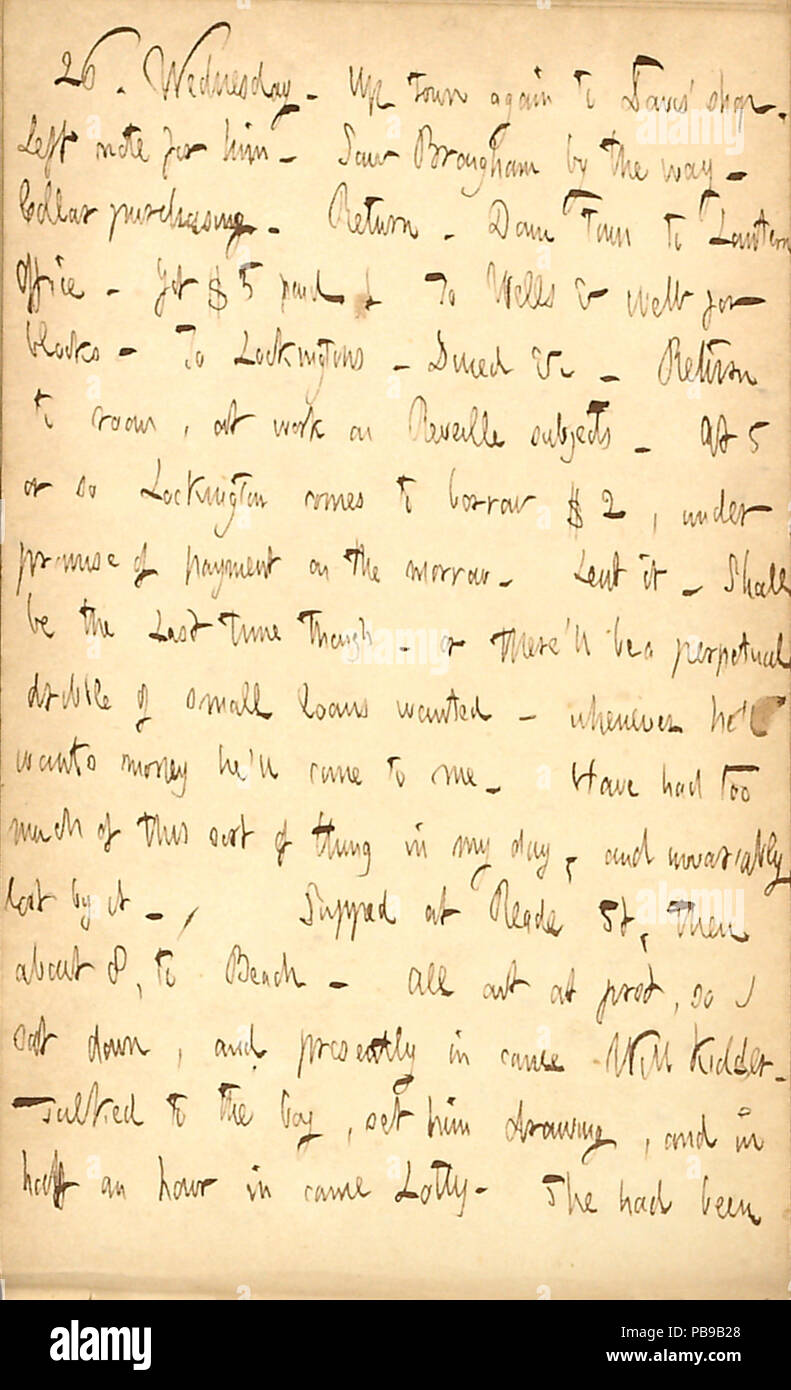 26. Wednesday. Up town again to Davis' shop.
Left note for him. Saw Brougham by the way.
Collar purchasing. Return. Down Town to Lantern
Office. Got $5 paid & To Wells & Webb for
blocks. To Lockingtons. Dined &c. Return
to room, at work on Reveille subjects. At 5
or so Lockington comes to borrow $2, under
promise of payment on the morrow. Lent it. Shall
be the last time though. or there'll be a perpetual
dribble of small loans wanted. whenever he
wants money he'll come to me. Have had too
much of this sort of thing in my day, and invariably
lost by it. Supped at Reade St, then
about 8, to Beach. All out at first, so I
sat down, and presently in came Will Kidder.
Talked to the boy, set him drawing, and in
half an hour in came Lotty. She had been
alamy
alamy
Image ID: PB9B28
www.alamy.com